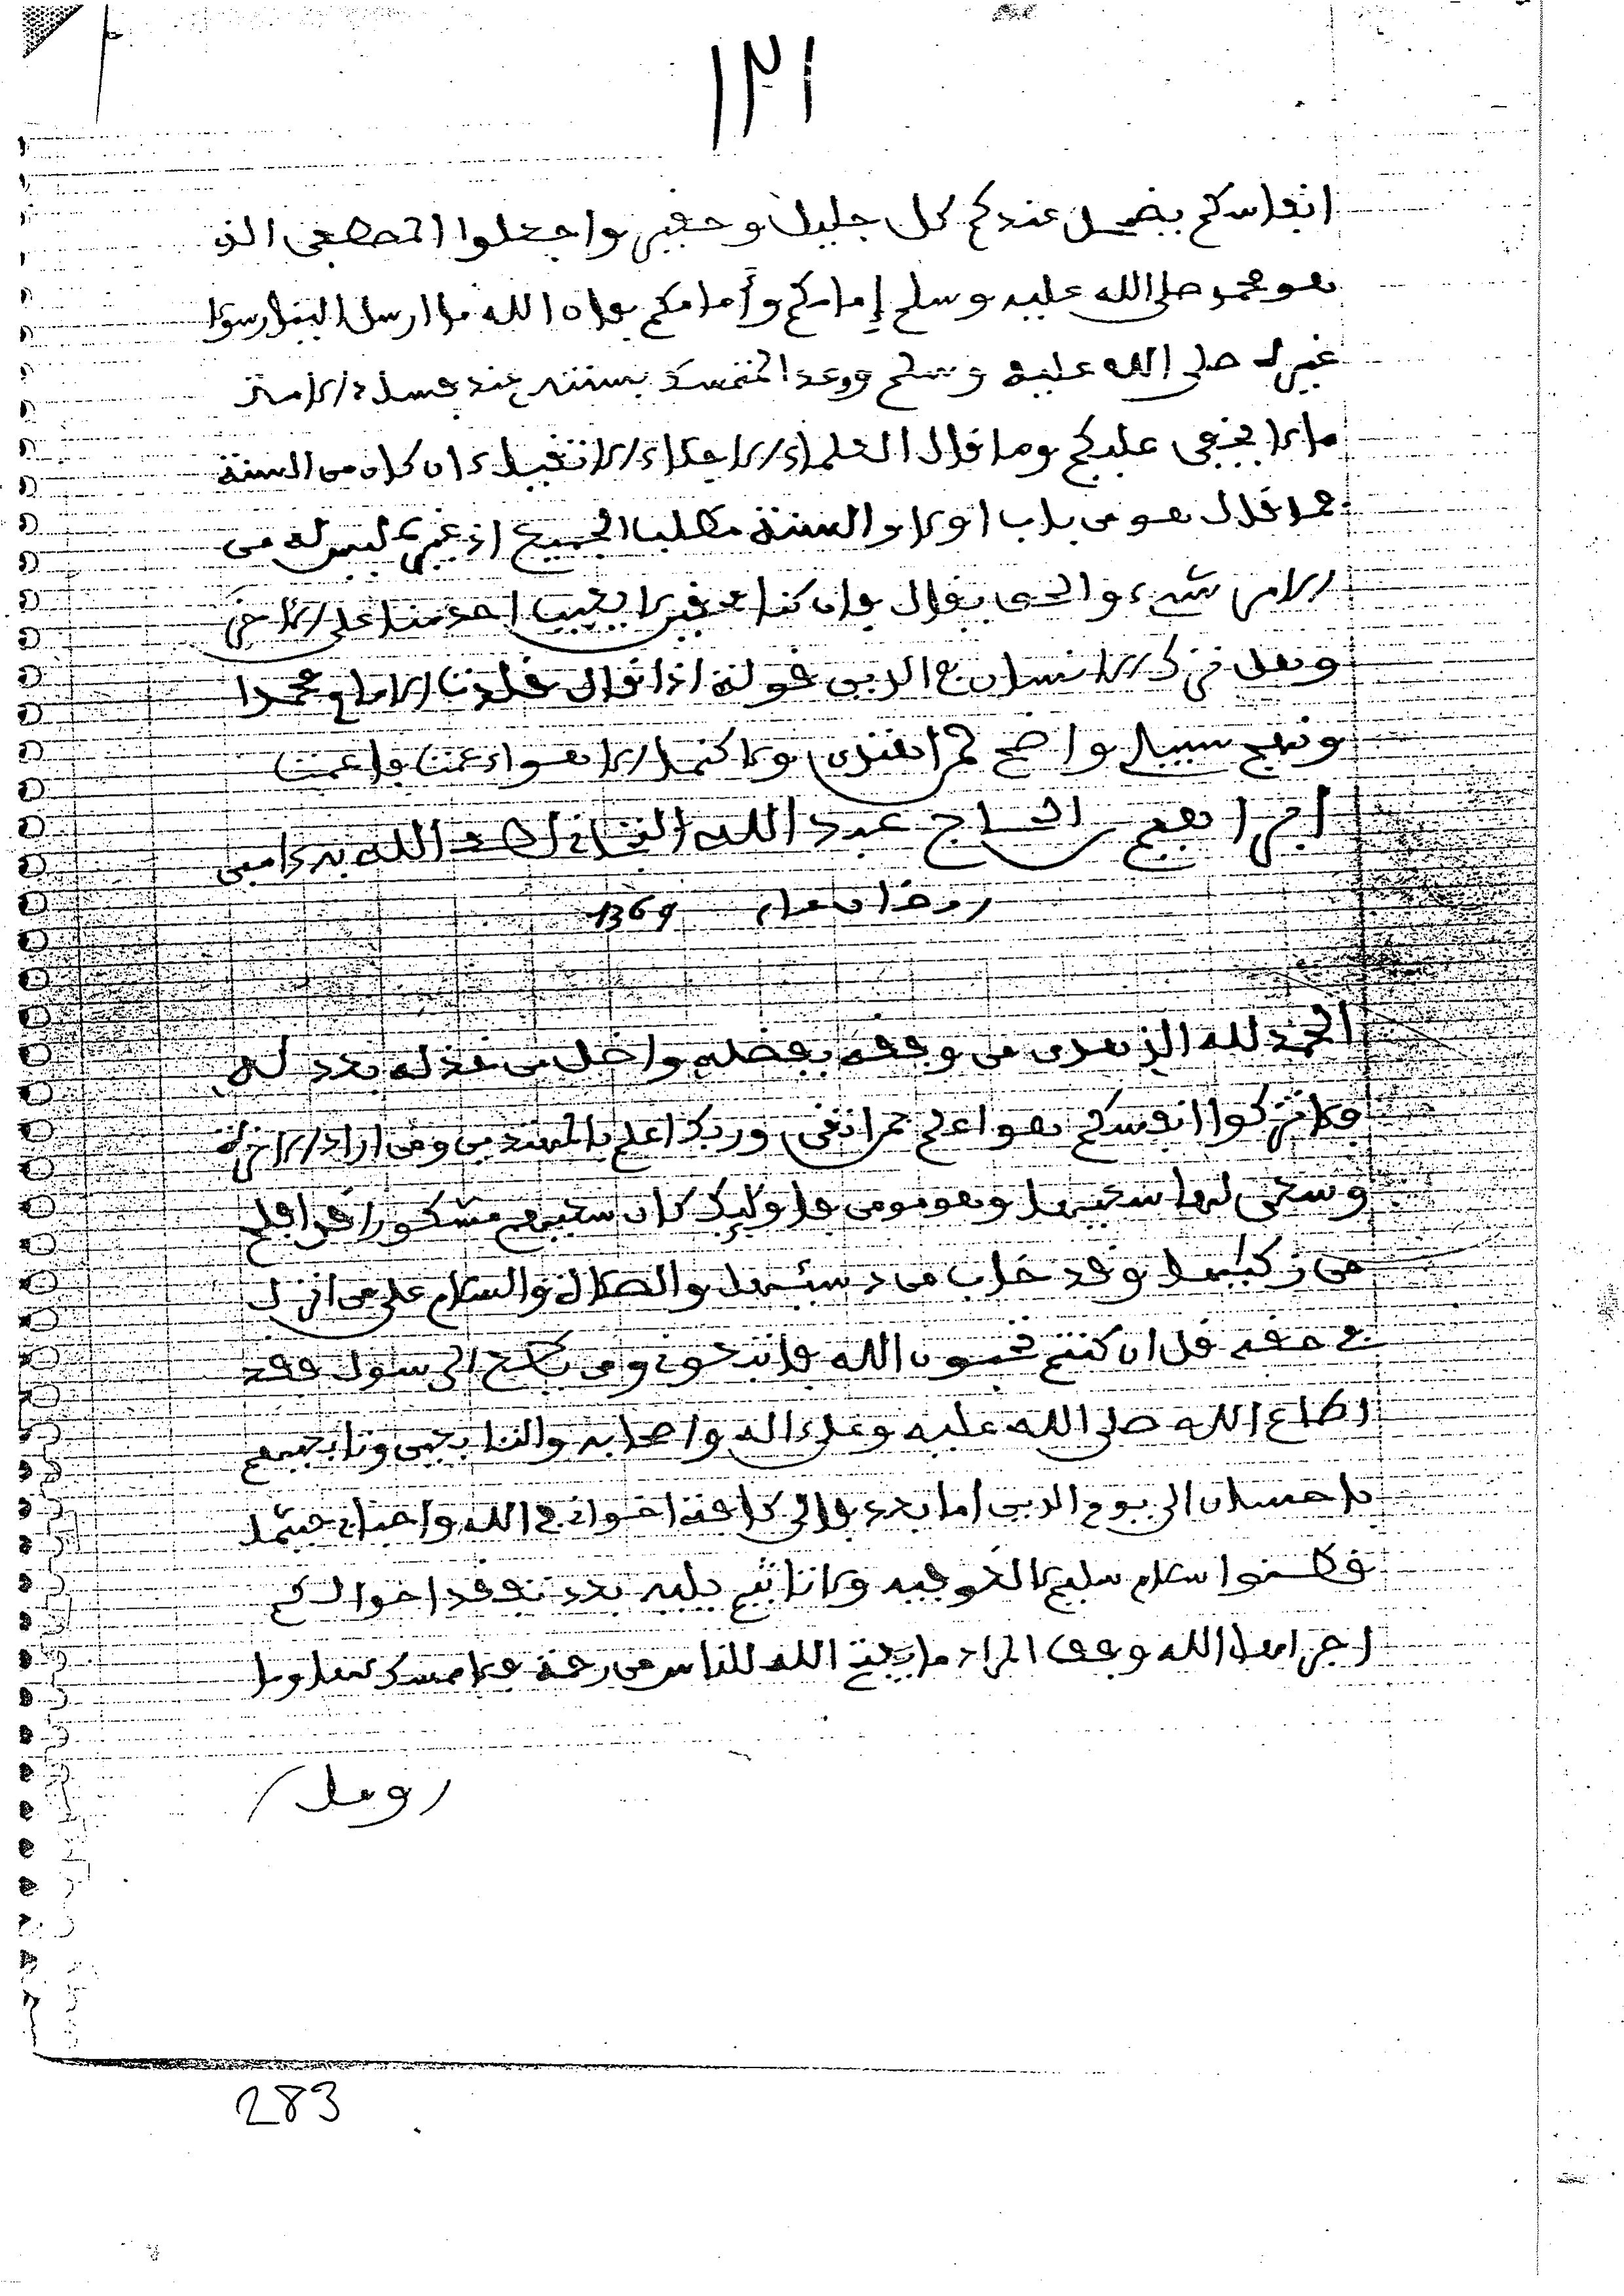 ١٣١
انفاسكم يضمحل عندكم كل جليل وحفير واجعلوا المصطفى الذي
هو محمد صلى الله عليه وسلم إمامكم وأمامكم فإن الله ما ارسل الينا رسولا
غيره صلى الله عليه وسلم ووعد المتمسك بسنته عند فساد الامة
ما لا يخفى عليكم وما قال العلماء الاجلاء الاتقياء ان كان من السنة
فما قال هو من باب اولا والسنة مطلب الجميع اذ غيره ليس له من
الامر شيء والحق يقال وان كنا لا يغيب احدنا على الاخر
وهل ترك الانسان في الدين قولة اذا قال قلدت الامام محمدا
ونهج سبيلي واضح لمن اهتدى ولاكنها الاهواء عمت فاعمت
اخوكم الحاج عبد الله التجاني الله به ءامين
رمضان عام 1369
الحمد لله الذي هدى من وفقه بفضله واضل من خذله بعدله
فلا تزكوا انفسكم هو اعلم بمن اتقى وربك اعلم بالمهتدين ومن اراد الاخرة
وسعى لها سعيها وهو مومن فاوليك كان سعيهم مشكورا قد افلح
من زكيها وقد خاب من دسيها والصلاة والسلام على من انزل
في حقه قل ان كنتم تحبون الله فاتبعوني ومن يطع الرسول فقد
اطاع الله صلى الله عليه وعلى ءاله واصحابه والتابعين وتابعيهم
باحسان الى يوم الدين اما بعد فإلى كافة اخواني في الله واحبائي حيثما
قطنوا سلام عليكم بعد تفقد احوالكم
اجراها الله وفق المراد ما يفتح الله للناس من رحمة فلا ممسك لها وما
وما
283